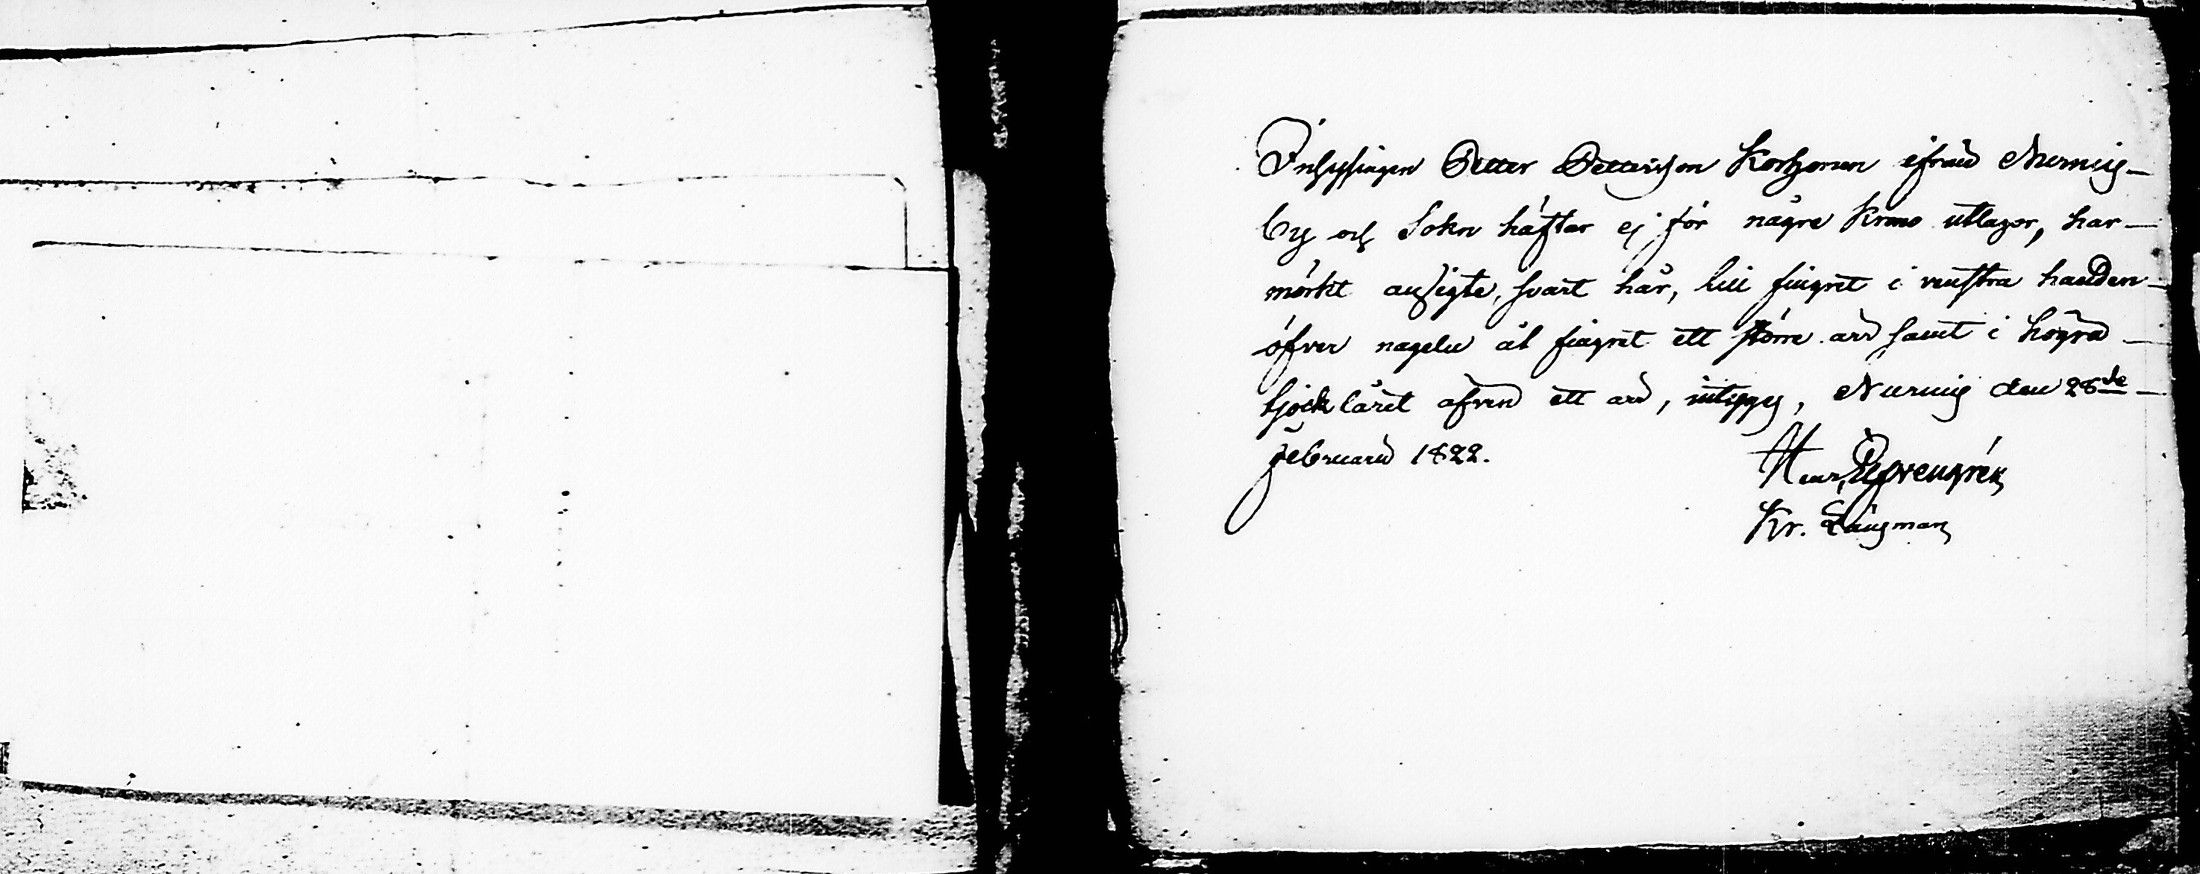 Inhysingen Petter Pettersson Korhonen ifrån Nurmis
by och Sokn häftar ej för några Krono utlagor, har
mörkt ansigte, svart hår, lill fingret i venstra handen
öfver nagelen åt fingret ett större arr samt i högra
tjock låret äfven ett arr, intygas, Nurmis den 28de
Februarii 1822.
Kr. Länsman